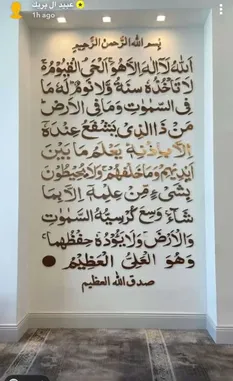 عبيد ال بريك
1h ago
بسم الله الرحمن الرحيم
الله لا إله إلا هو الحي القيوم
لا تأخذه سنة ولا نوم له ما
في السموت وما في الأرض
من ذا الذي يشفع عنده
إلا بإذنه يعلم ما بين
أيديهم وما خلفهم ولا يحيطون
بشيء من علمه إلا بما
شاء وسع كرسيه السموت
والأرض ولا يؤده حفظهما
وهو العلي العظيم
صدق الله العظيم